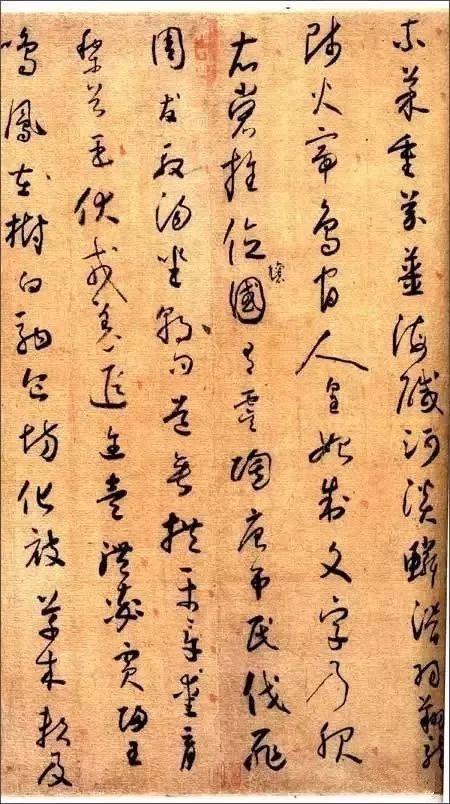 柰菜重芥薑海鹹河淡鱗潛羽翔龍
師火帝鳥官人皇始制文字乃服
衣裳推位讓國有虞陶唐弔民伐罪
周發殷湯坐朝問道垂拱平章愛育
黎首臣伏戎羌遐邇壹體率賓歸王
鳴鳳在樹白駒食場化被草木賴及